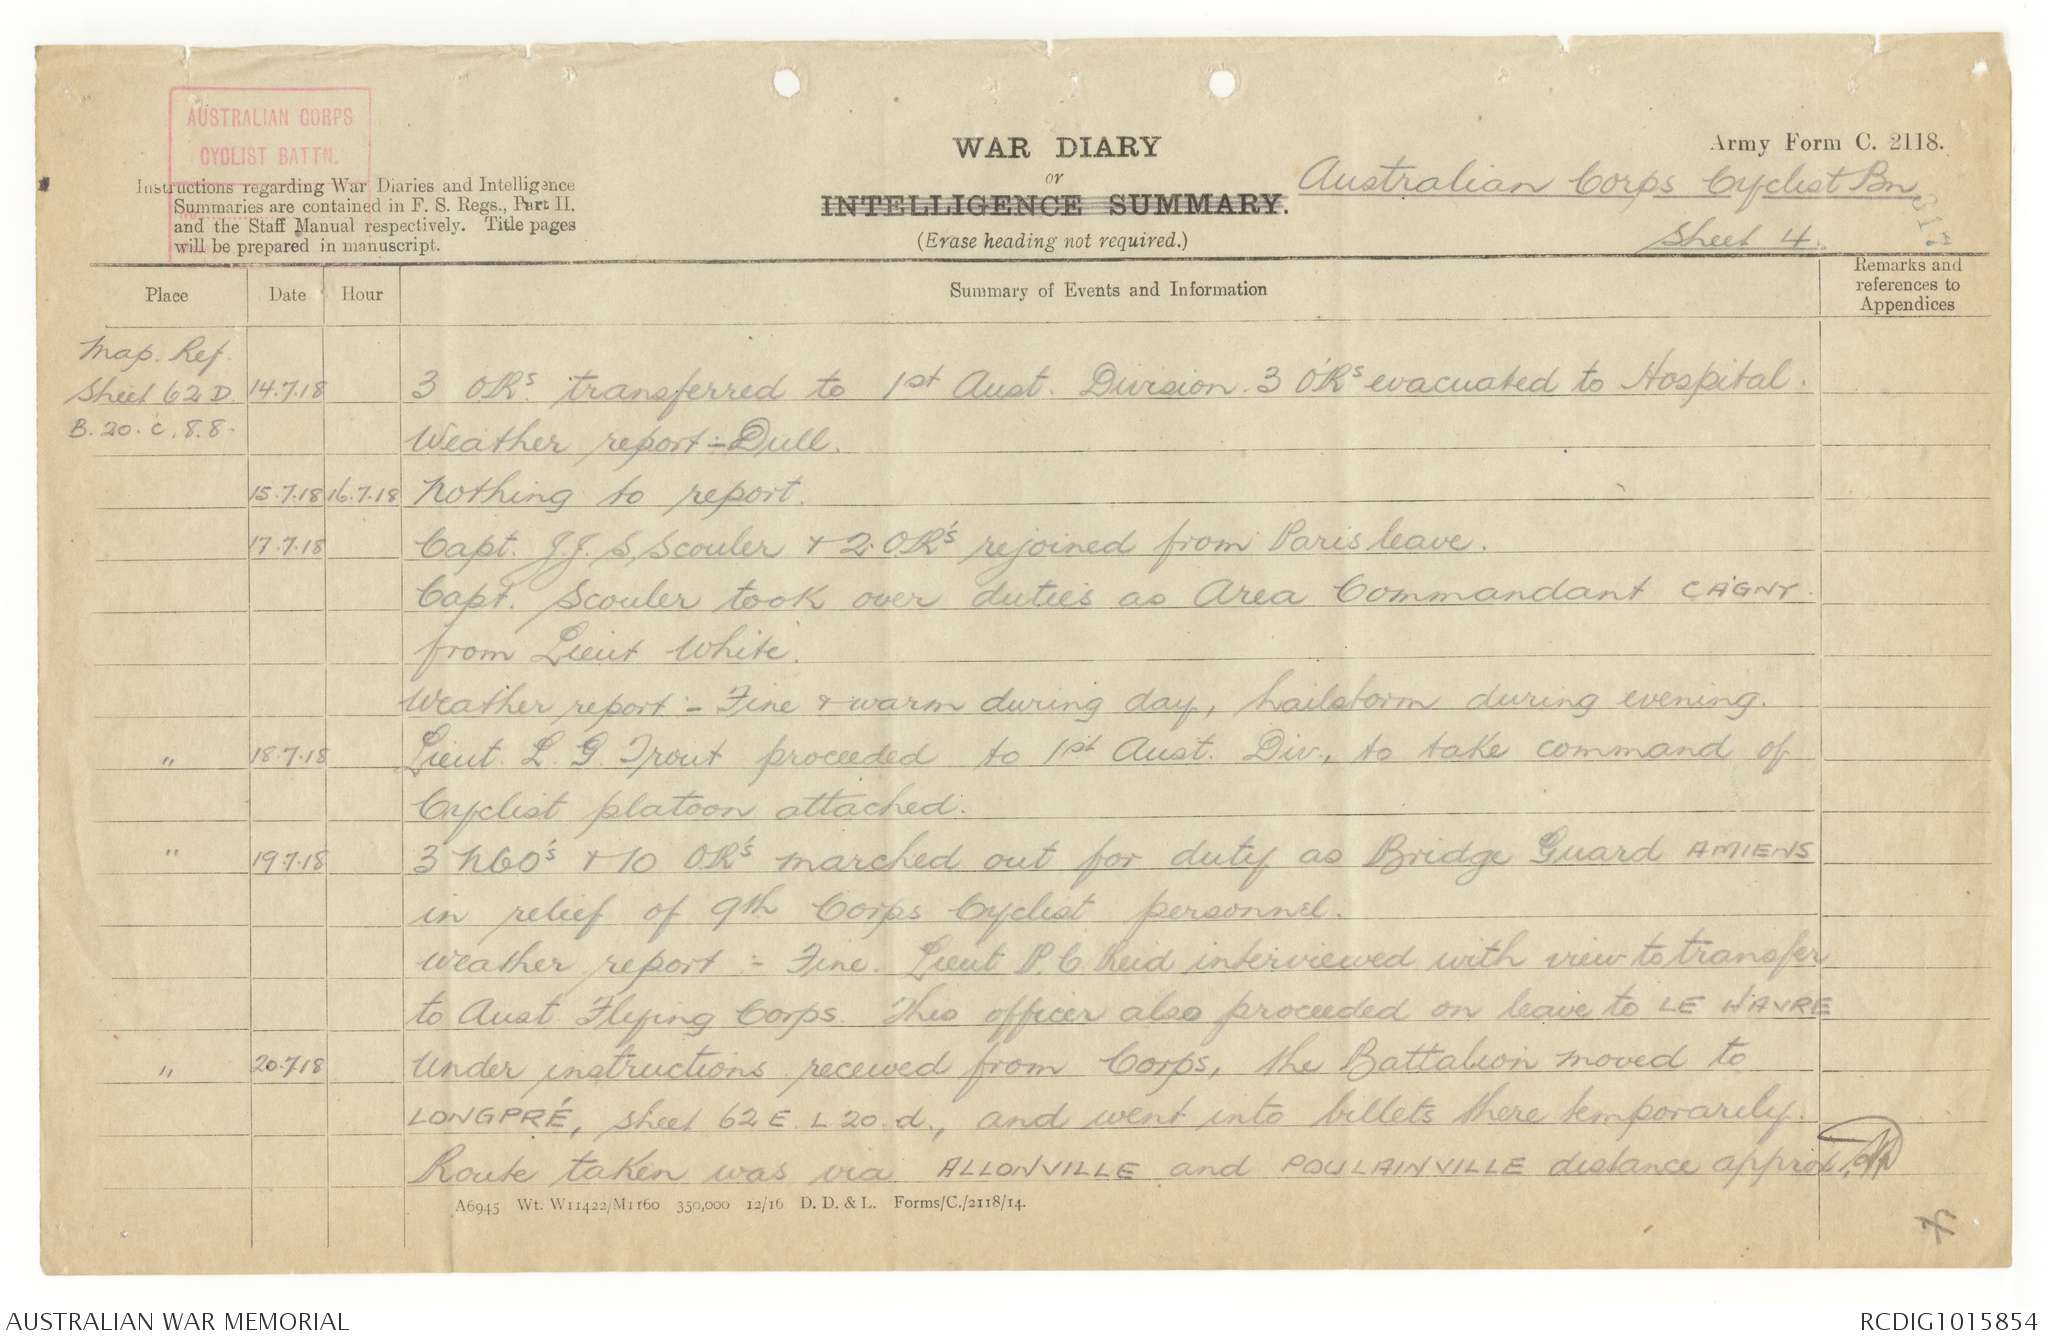 AUSTRALIAN CORPS
CYCLIST BATTN.
WAR DIARY
or
INTELLIGENCE SUMMARY.
(Erase heading not required.)
Army Form C. 2118.
Australian Corps Cyclist Bn
Sheet 4.
Instructions regarding War Diaries and Intelligence
Summaries are contained in F. S. Regs., Part II.
and the Staff Manual respectively. Title pages
will be prepared in manuscript.
Place Date Hour Summary of Events and Information Remarks and references to Appendices
Map. Ref.
Sheet 62 D 14.7.18 3 ORs. transferred to 1st Aust. Division. 3 ORs evacuated to Hospital.
B. 20. c. 8.8. Weather report :- Dull.
15.7.18 16.7.18 Nothing to report.
17.7.18 Capt. J.J. S Scouler + 2. OR's rejoined from Paris leave.
Capt. Scouler took over duties as Area Commandant CAGNY.
from Lieut White.
Weather report :- Fine & warm during day, hailstorm during evening.
" 18.7.18 Lieut. L. G. Trout proceeded to 1st Aust. Div., to take command of
Cyclist platoon attached.
" 19.7.18 3 NCO's + 10 OR's marched out for duty as Bridge Guard AMIENS
in relief of 9th Corps Cyclist personnel.
Weather report :- Fine. Lieut P. C. Reid interviewed with view to transfer
to Aust. Flying Corps. This officer also proceeded on leave to LE HAVRE
" 20.7.18 Under instructions received from Corps, the Battalion moved to
LONGPRÉ, sheet 62 E. L 20. d., and went into billets there temporarily.
Route taken was via ALLONVILLE and POULAINVILLE distance approx
A6945 Wt. W11422/M1160 350,000 12/16 D. D. & L. Forms/C./2118/14.
AUSTRALIAN WAR MEMORIAL
RCDIG1015854